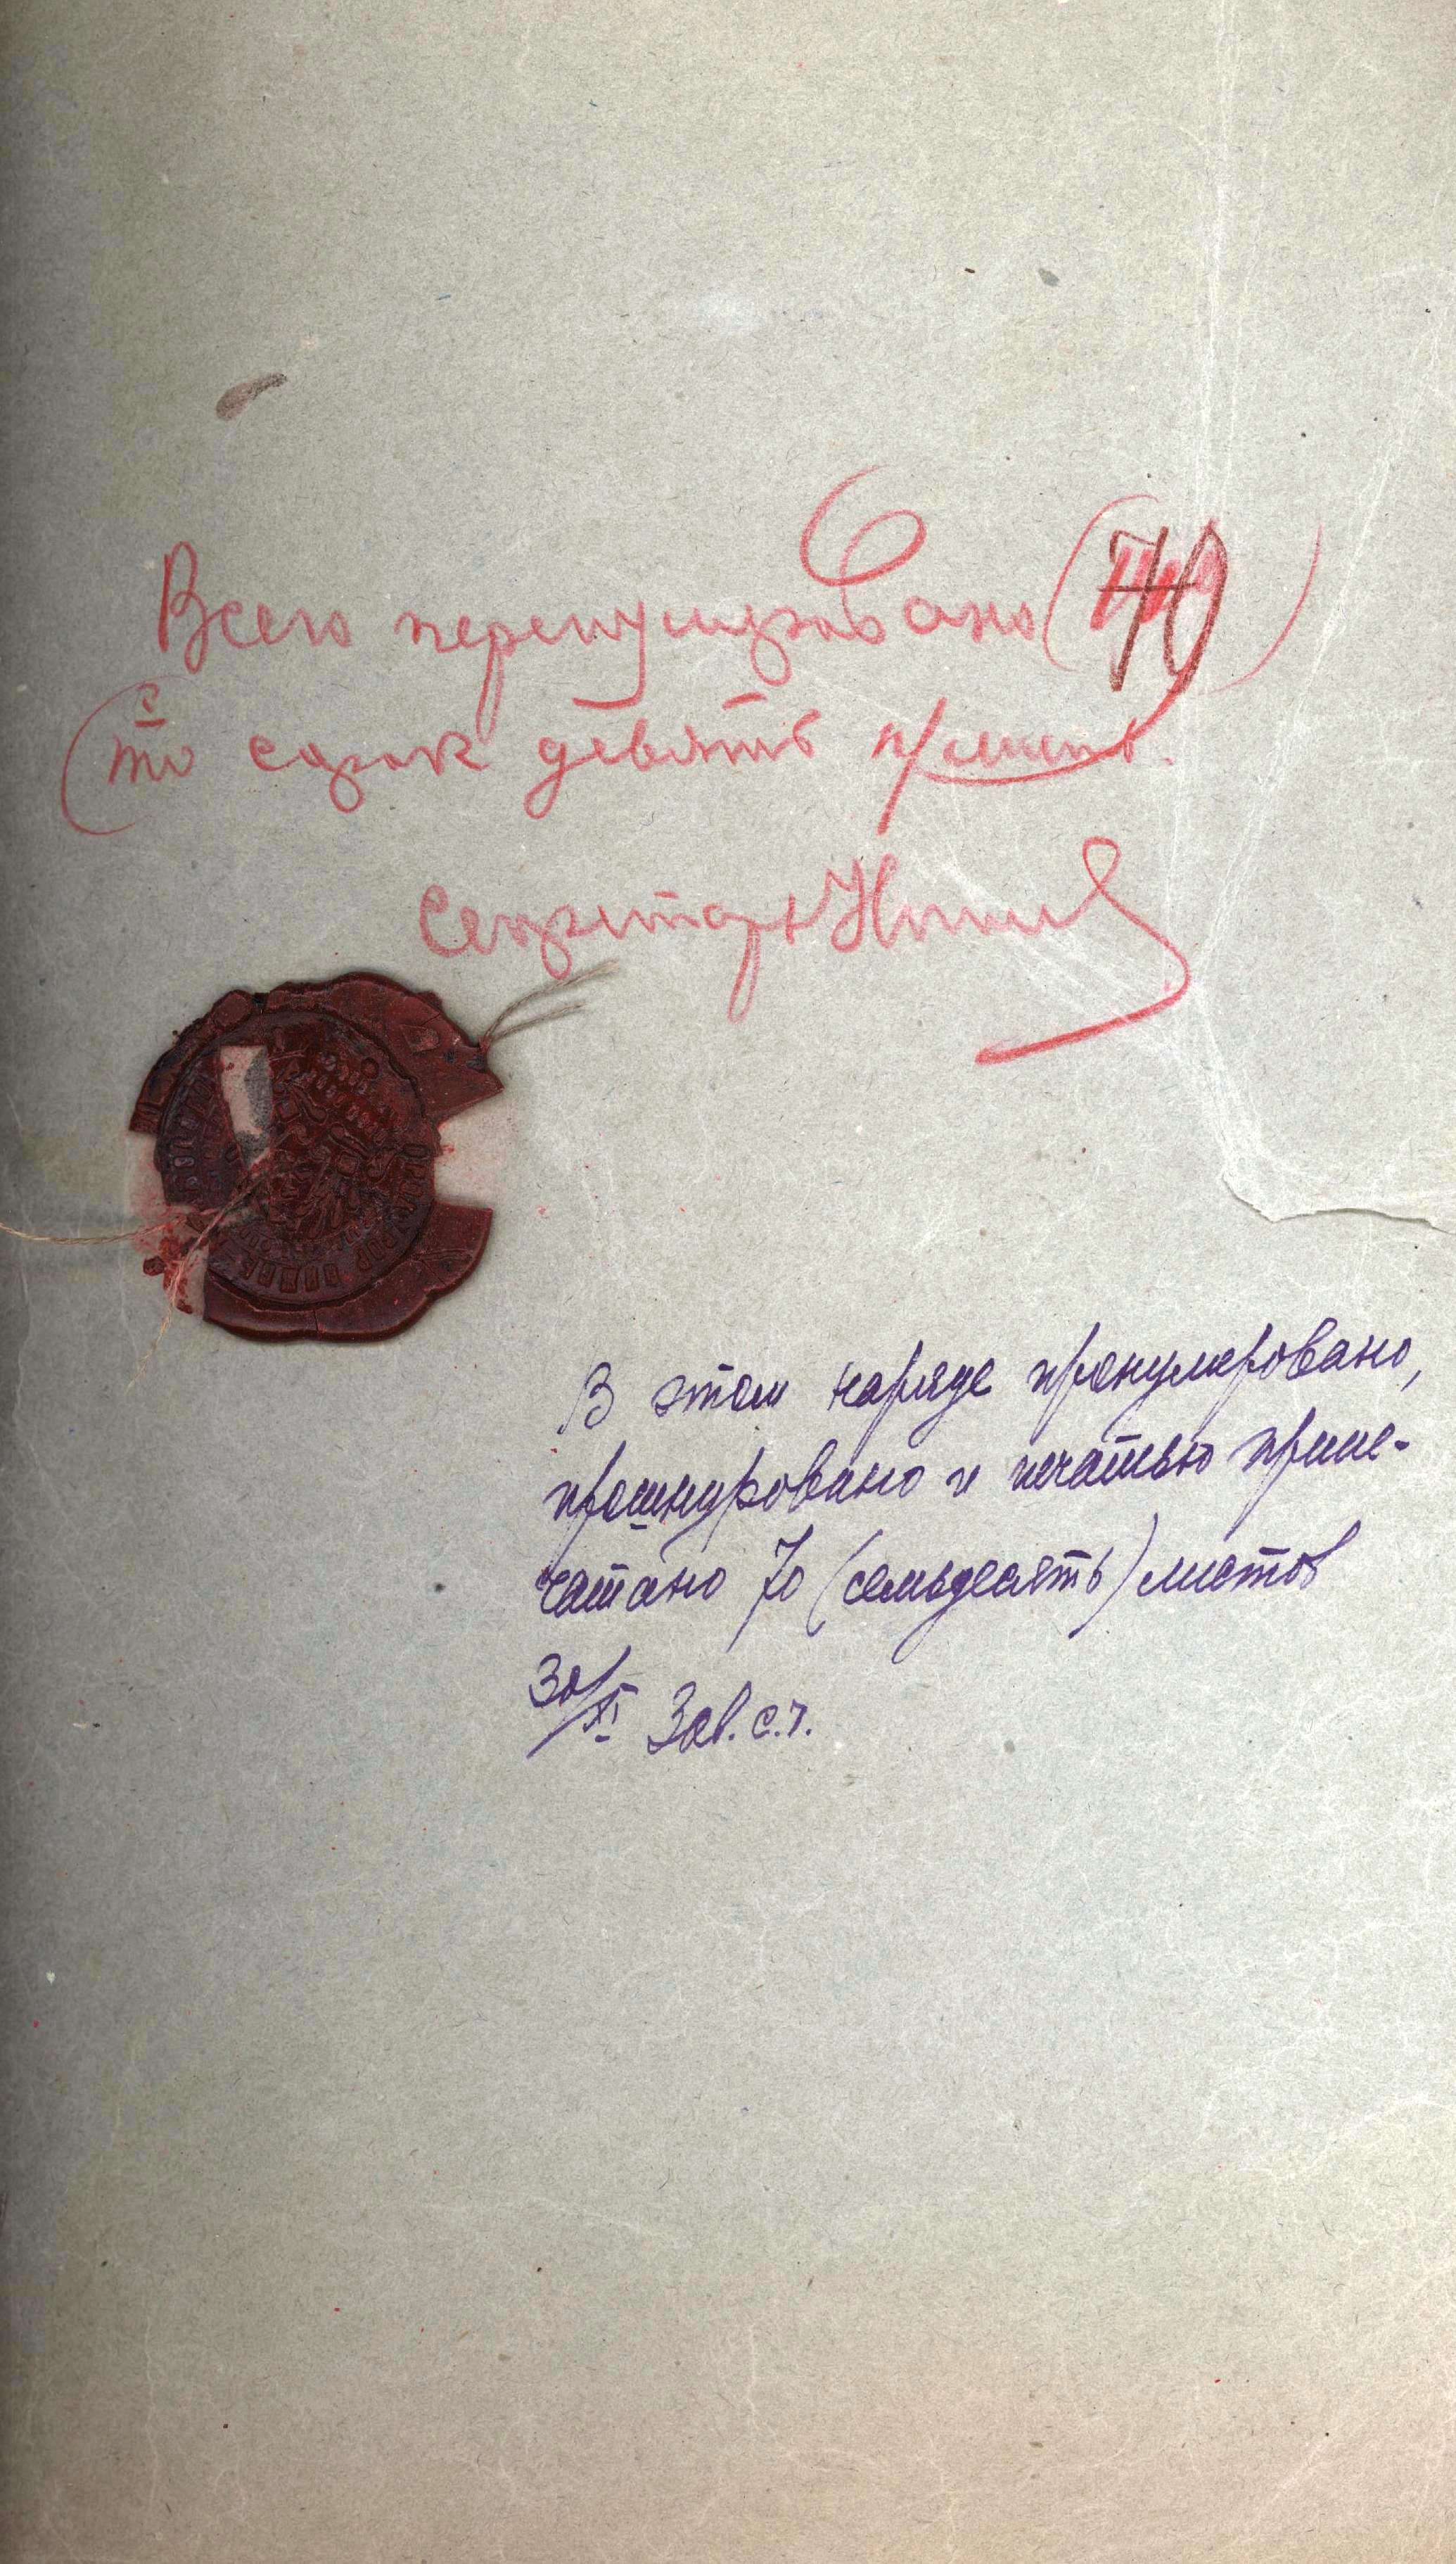 Всего перенумеровано (70)
(сто сорок девять п/листов.
Секретарь
В этом наряде пронумеровано,
прошнуровано и печатью припе-
чатано 70 (семьдесять) листов
30/XI Зав. с.ч.